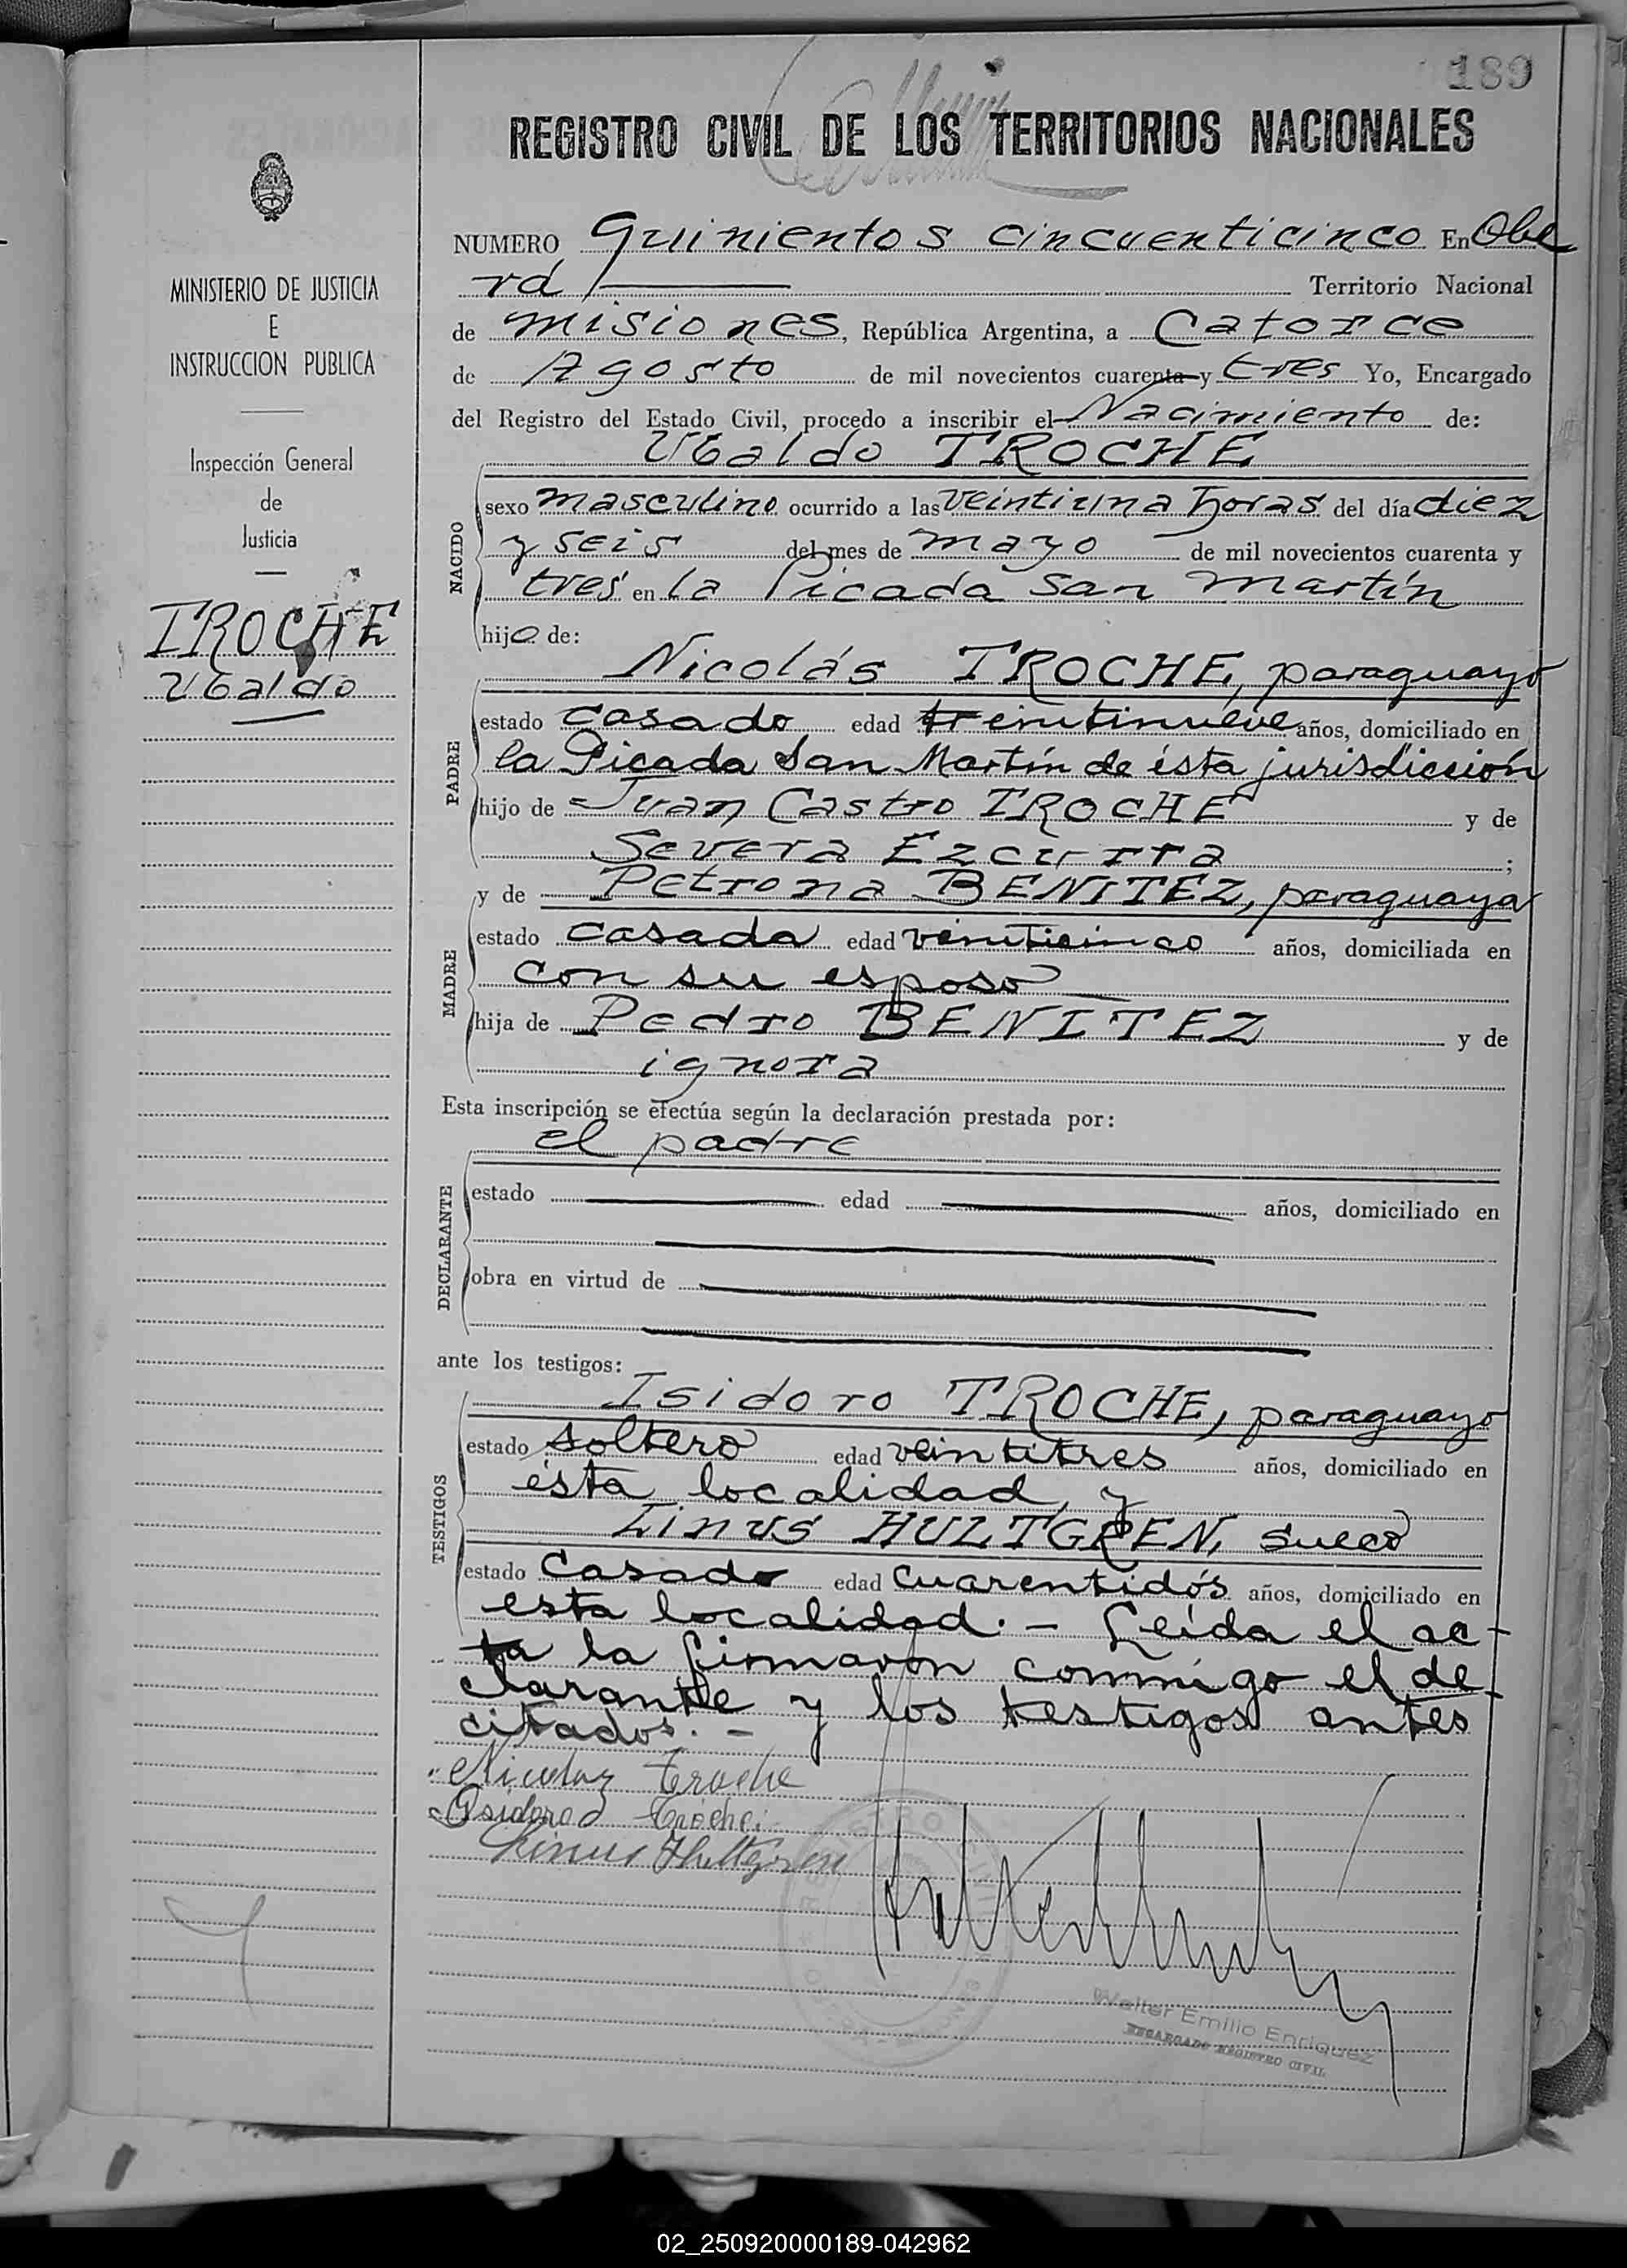 189
REGISTRO CIVIL DE LOS TERRITORIOS NACIONALES
MINISTERIO DE JUSTICIA
E
INSTRUCCION PUBLICA
Inspección General
de
Justicia
TROCHE
Ubaldo
NUMERO Quinientos cincuenticinco En Obe
rá Territorio Nacional
de Misiones, República Argentina, a Catorce
de Agosto de mil novecientos cuarenta y tres Yo, Encargado
del Registro del Estado Civil, procedo a inscribir el Nacimiento de:
Ubaldo TROCHE
NACIDO
sexo masculino ocurrido a las veintiuna horas del día diez
y seis del mes de mayo de mil novecientos cuarenta y
tres en la Picada San Martín
hijo de:
Nicolás TROCHE, paraguayo
PADRE
estado casado edad treintinueve años, domiciliado en
la Picada San Martín de ésta jurisdicción
hijo de Juan Castro TROCHE y de
Severa Ezcurra ;
y de Petrona BENITEZ, paraguaya
MADRE
estado casada edad veinticinco años, domiciliada en
con su esposo
hija de Pedro BENITEZ y de
ignora
Esta inscripción se efectúa según la declaración prestada por:
el padre
DECLARANTE
estado edad años, domiciliado en
obra en virtud de
ante los testigos:
Isidoro TROCHE, paraguayo
TESTIGOS
estado soltero edad veintitres años, domiciliado en
ésta localidad, y
Linus HULTGREN, sueco
estado casado edad cuarentidós años, domiciliado en
esta localidad. - Leída el ac-
ta la firmaron conmigo el de-
clarante y los testigos antes
citados. -
Nicolaz Troche
Isidoro Troche
Linus Hultgren
Walter Emilio Enriquez
ENCARGADO REGISTRO CIVIL
02_250920000189-042962